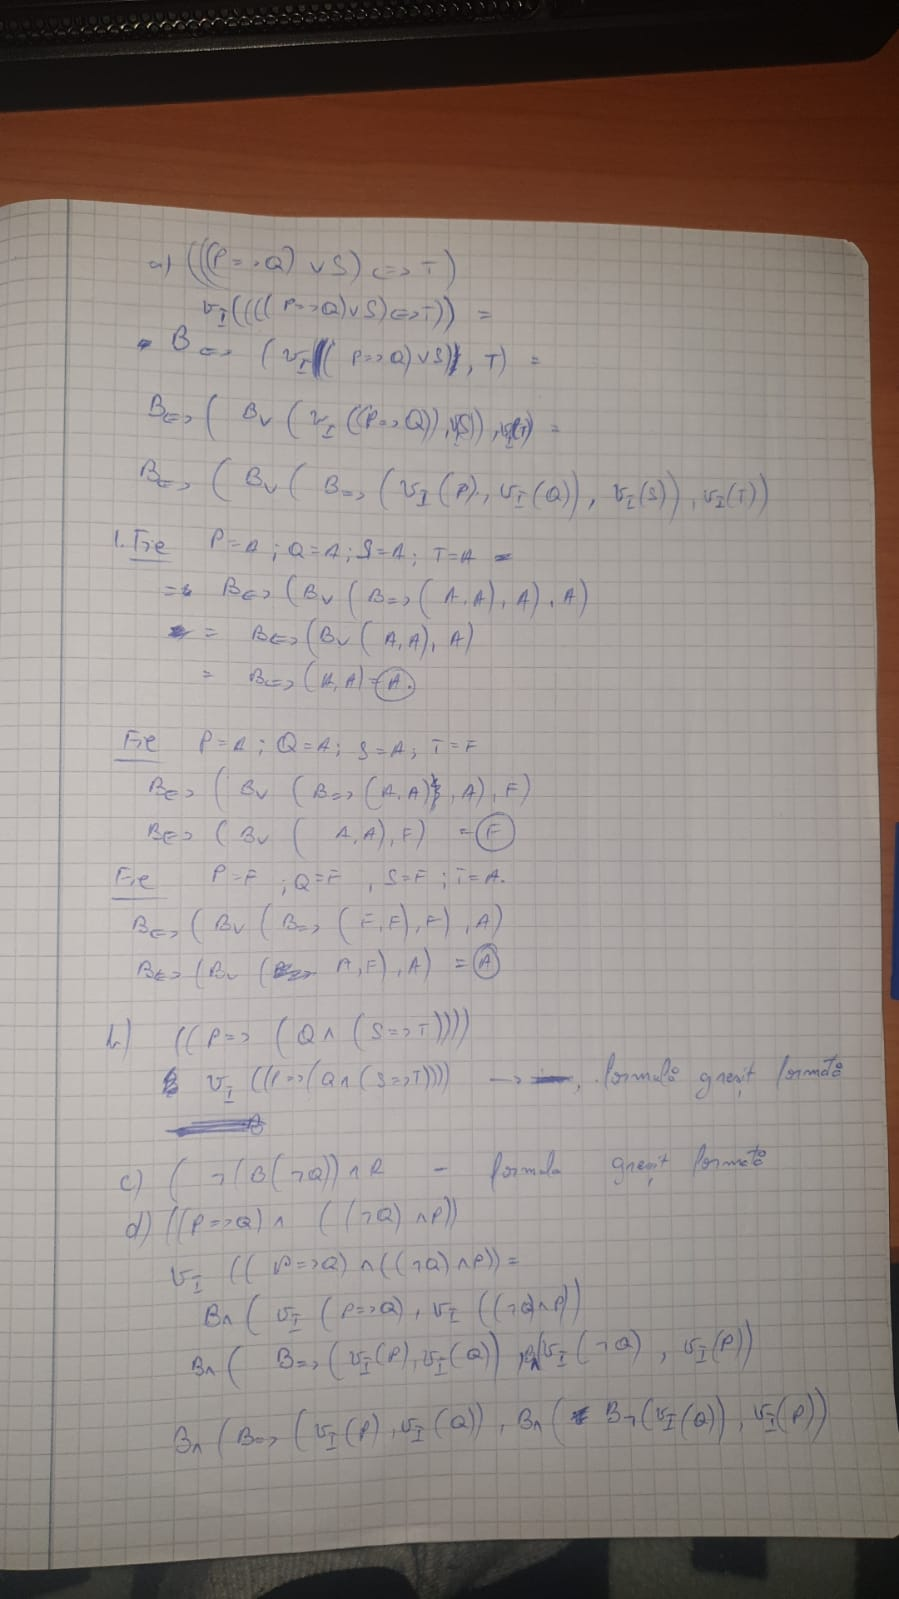 a) (((P=>Q) ∨ S) <=> T)
v_I((((P=>Q)∨S)<=>T)) =
= B<=> (v_I((P=>Q)∨S), T) =
B<=> ( B∨ ( v_I ((P=>Q)), v_I(S)), v_I(T)) =
B<=> ( B∨ ( B=> ( v_I (P), v_I (Q)), v_I (S)), v_I (T))
1. Fie P=A ; Q=A ; S=A ; T=A
= B<=> (B∨ ( B=> ( A,A), A), A)
= B<=> (B∨ ( A,A), A)
= B<=> (A,A) = A.
Fie P=A ; Q=A; S=A; T=F
B<=> ( B∨ ( B=> (A,A), A), F)
B<=> ( B∨ ( A,A), F) = F
Fie P=F ; Q=F , S=F ; T=A.
B<=> ( B∨ ( B=> ( F,F), F), A)
B<=> (B∨ ( A,F), A) = A
b) ((P=> (Q∧ (S=>T))))
v_I ((P=>(Q∧(S=>T)))) → formulă greșit formată
c) ( ¬(B(¬Q)) ∧ R - formula greșit formată
d) ((P=>Q) ∧ ((¬Q) ∧P))
v_I (( P=>Q) ∧((¬Q)∧P)) =
B∧ ( v_I (P=>Q), v_I ((¬Q∧P))
B∧ ( B=> (v_I(P), v_I(Q)), B∧(v_I (¬Q), v_I(P))
B∧ (B=> (v_I (P), v_I (Q)), B∧ ( B¬ (v_I(Q)), v_I(P))